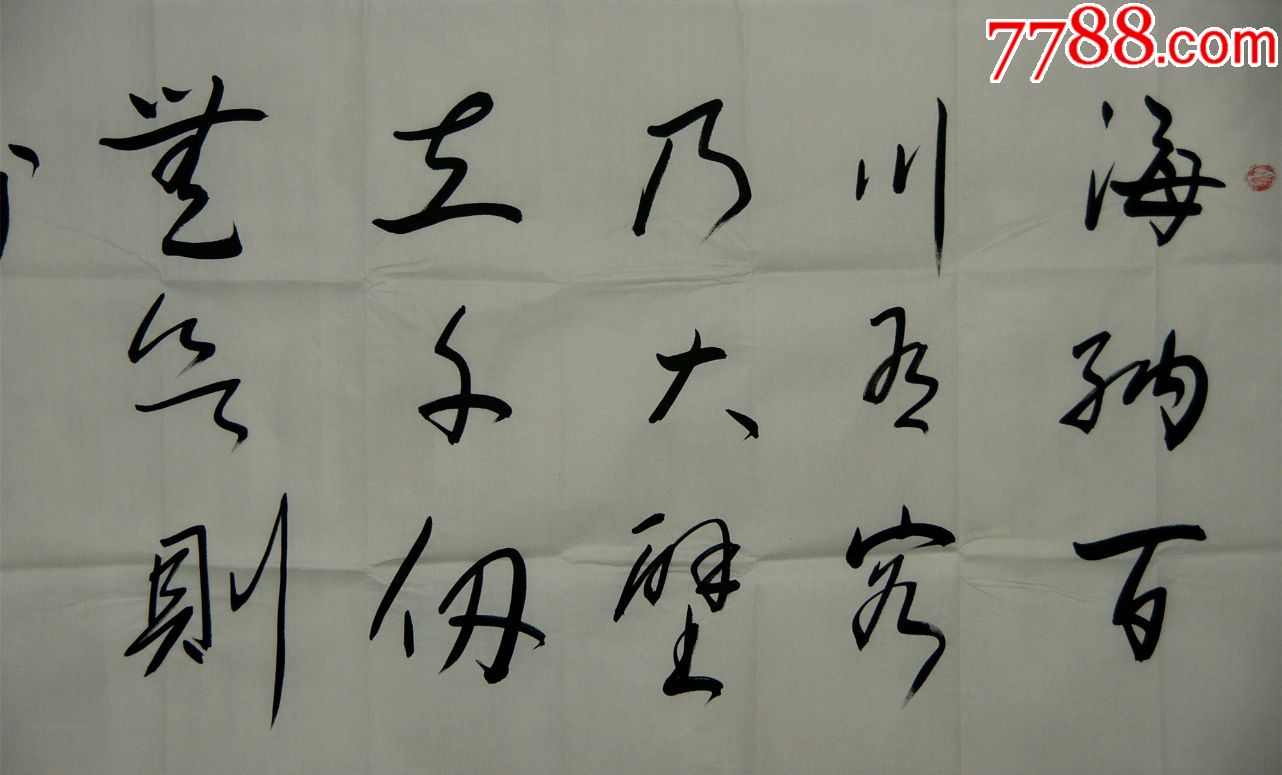 7788.com
海納百
川有容
乃大壁
立千仞
無欲則